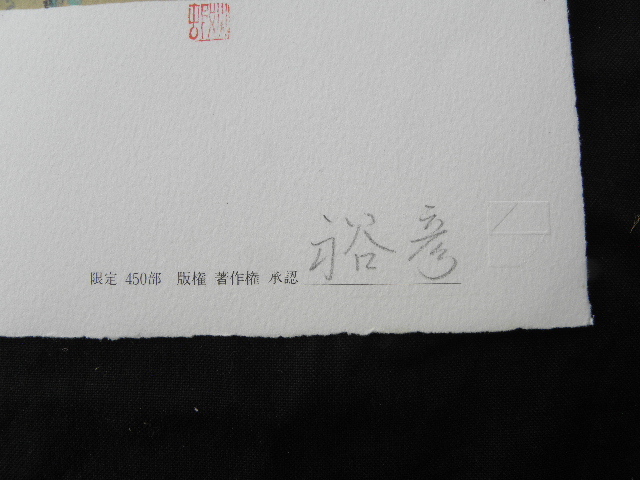 限定 450部 版権 著作権 承認 裕彦